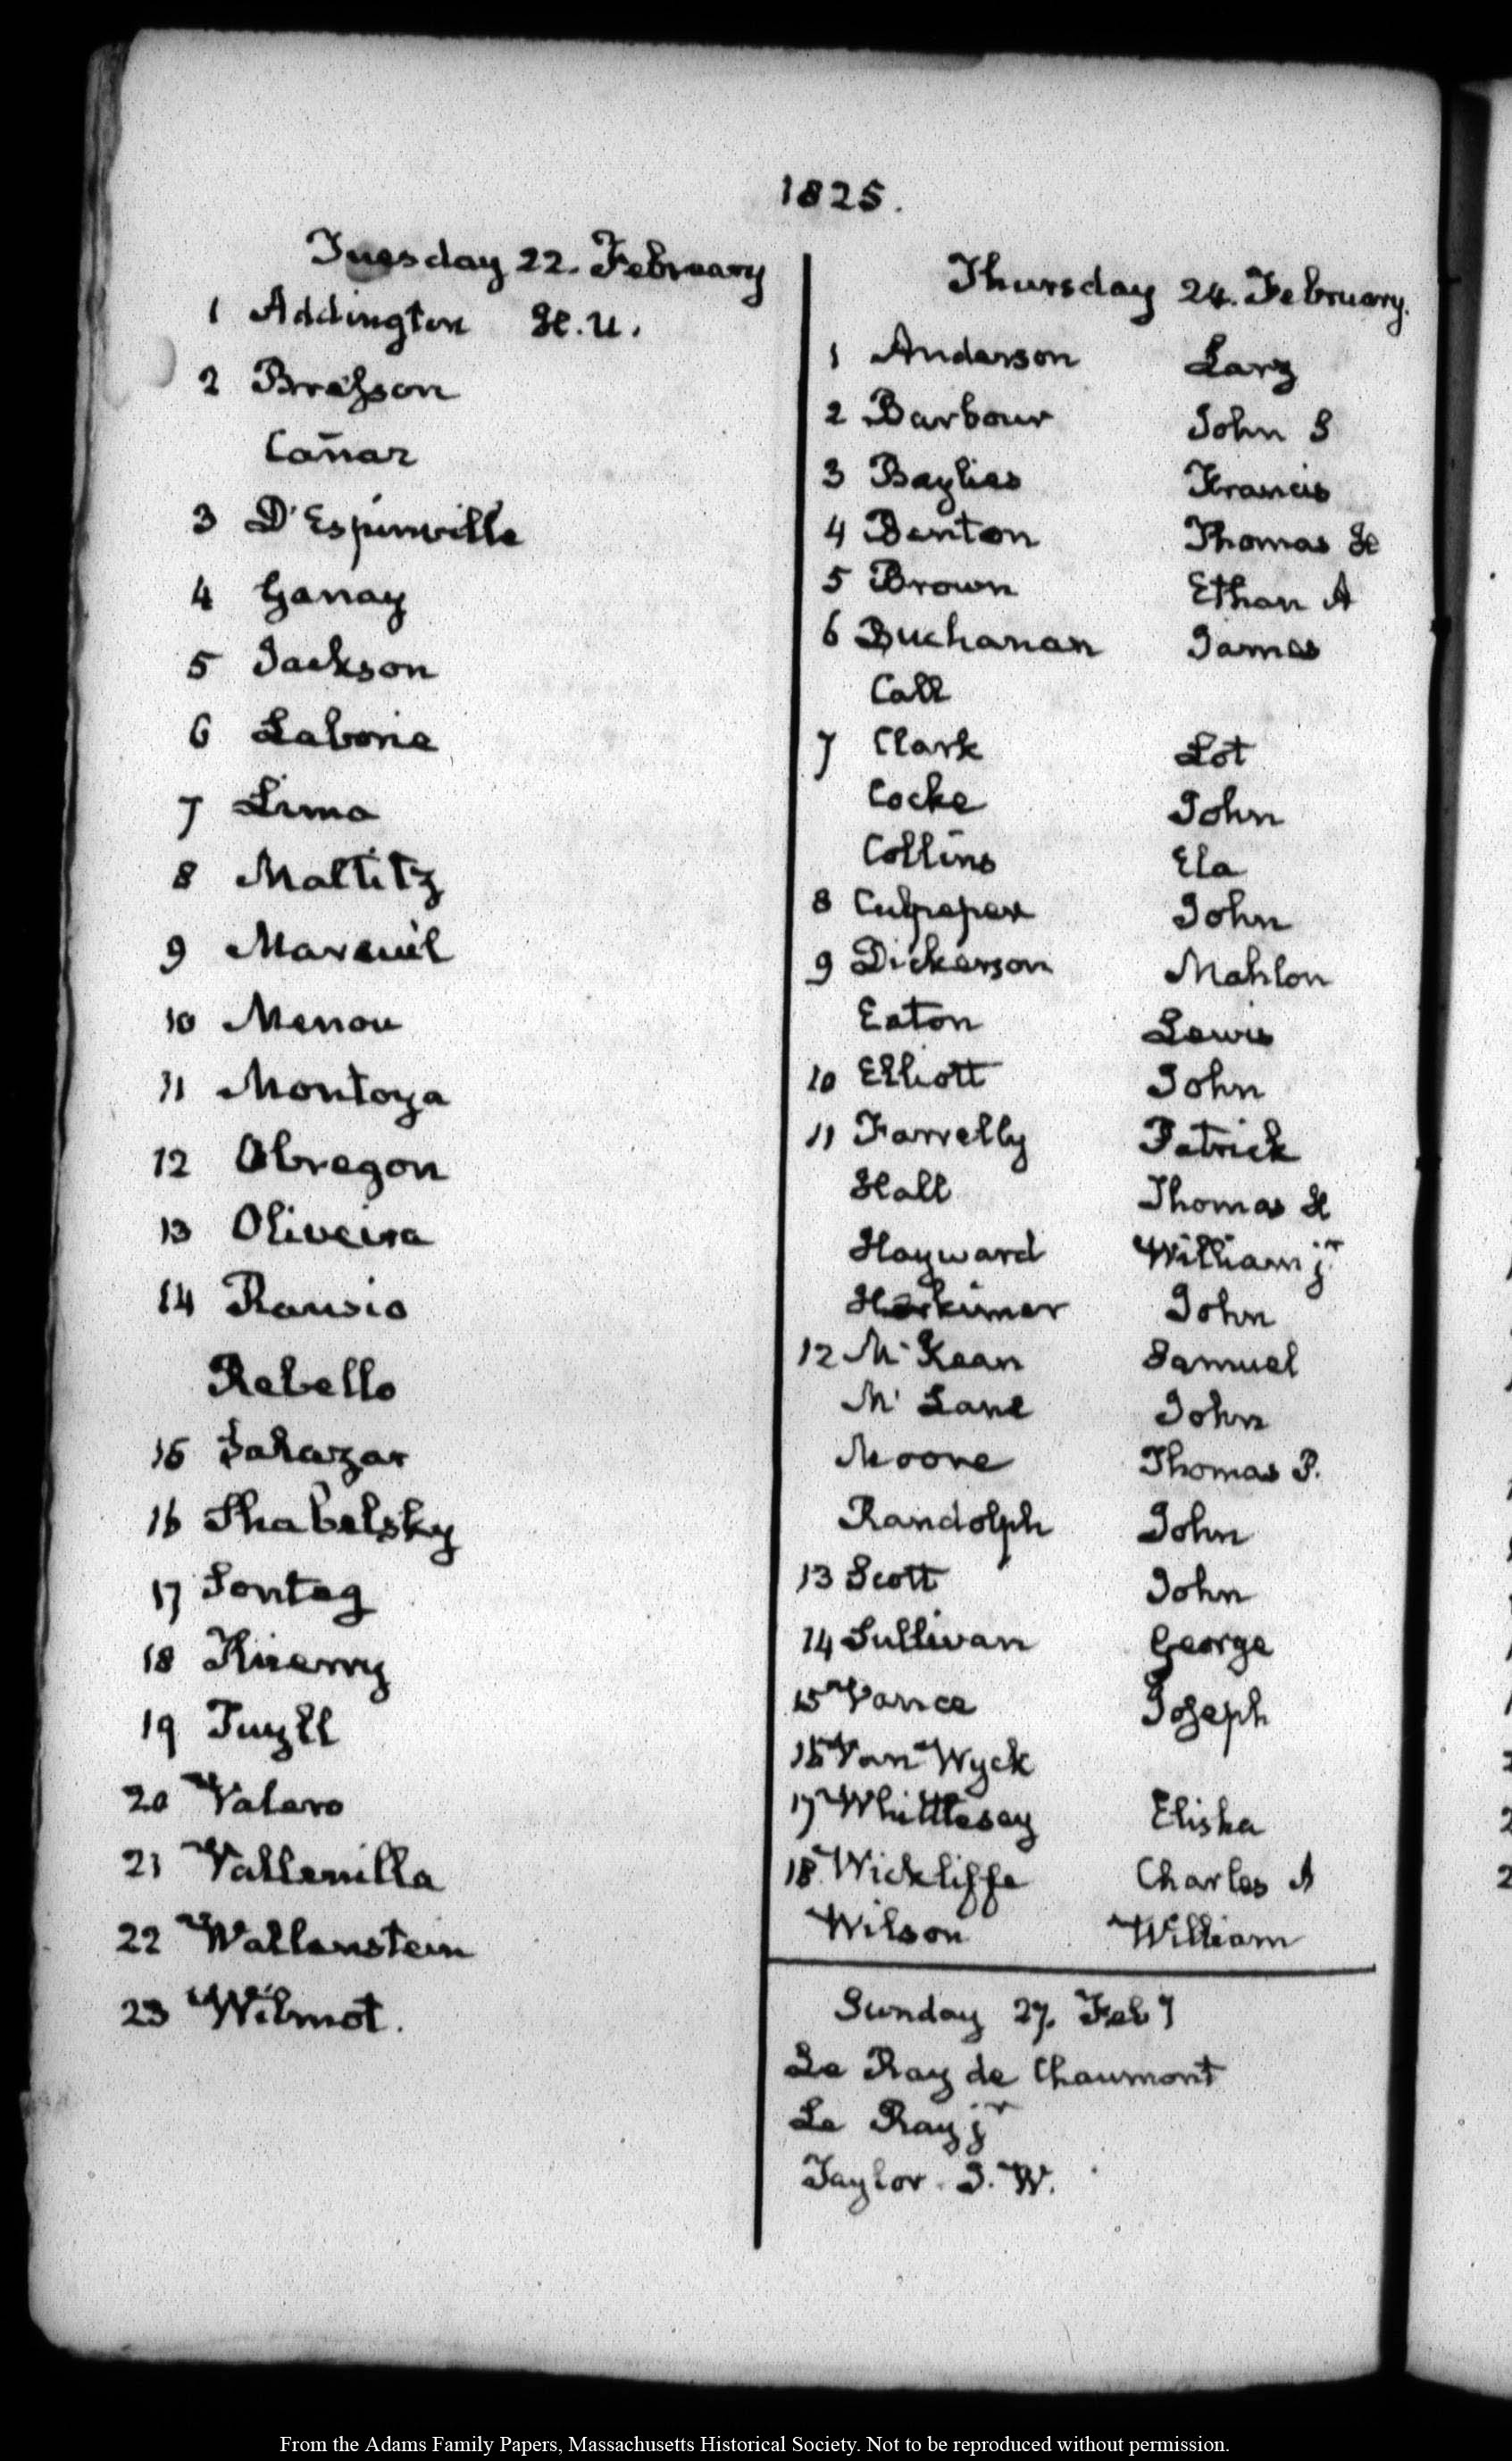 1825.
Tuesday 22. February
1 Addington H. U.
2 Bresson
Cañaz
3 D'Espinville
4 Ganay
5 Jackson
6 Laborie
7 Lima
8 Maltitz
9 Mareuil
10 Menou
11 Montoya
12 Obregon
13 Oliveira
14 Rausio
Rebello
15 Salazar
16 Shabelsky
17 Sontag
18 Thierry
19 Tuyll
20 Valero
21 Vallenilla
22 Wallenstein
23 Wilmot.
Thursday 24. February.
1 Anderson Larz
2 Barbour John S
3 Baylies Francis
4 Benton Thomas H
5 Brown Ethan A
6 Buchanan James
Call
7 Clark Lot
Cocke John
Collins Ela
8 Culpeper John
9 Dickerson Mahlon
Eaton Lewis
10 Elliott John
11 Farrelly Patrick
Hall Thomas H
Hayward William jr
Herkimer John
12 Mc Kean Samuel
Mc Lane John
Moore Thomas P.
Randolph John
13 Scott John
14 Sullivan George
15 Vance Joseph
16 Van Wyck
17 Whittlesey Elisha
18 Wickliffe Charles A
Wilson William
Sunday 27. Feby
Le Ray de Chaumont
Le Ray jr
Taylor. J. W.
From the Adams Family Papers, Massachusetts Historical Society. Not to be reproduced without permission.